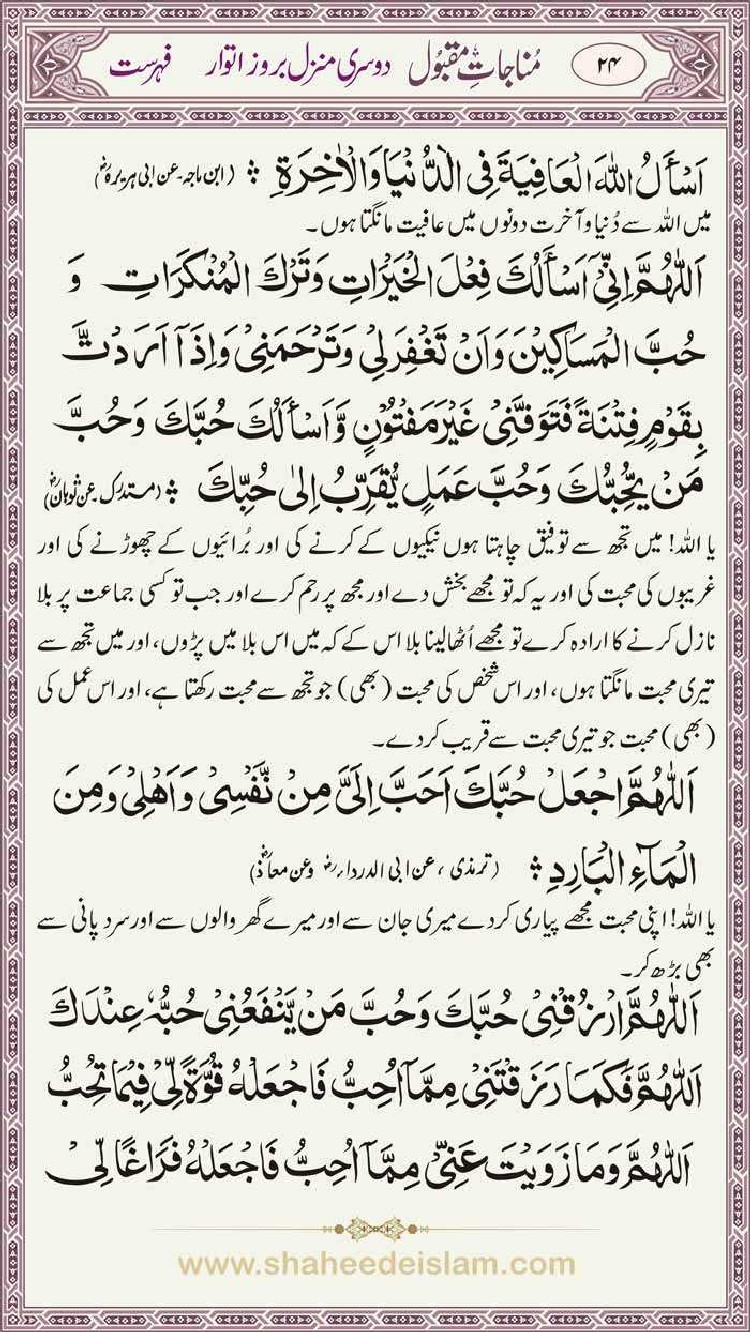 ۲۴ مُناجاتِ مقبُول دوسری منزل بروز اتوار فہرست
اَسْأَلُ اللّٰهَ الْعَافِيَةَ فِي الدُّنْيَا وَالْاٰخِرَةِ ؞ (ابن ماجہ۔عن ابی ہریرہؓ)
میں اللہ سے دُنیا و آخرت دونوں میں عافیت مانگتا ہوں۔
اَللّٰهُمَّ اِنِّيْٓ اَسْأَلُكَ فِعْلَ الْخَيْرَاتِ وَتَرْكَ الْمُنْكَرَاتِ وَ
حُبَّ الْمَسَاكِيْنَ وَاَنْ تَغْفِرَلِيْ وَتَرْحَمَنِيْ وَاِذَآ اَرَدْتَّ
بِقَوْمٍ فِتْنَةً فَتَوَفَّنِيْ غَيْرَ مَفْتُوْنٍ وَّاَسْأَلُكَ حُبَّكَ وَحُبَّ
مَنْ يُّحِبُّكَ وَحُبَّ عَمَلٍ يُّقَرِّبُ اِلٰى حُبِّكَ ؞ (مستدرک۔عن ثوبانؓ)
یا اللہ! میں تجھ سے توفیق چاہتا ہوں نیکیوں کے کرنے کی اور بُرائیوں کے چھوڑنے کی اور
غریبوں کی محبت کی اور یہ کہ تو مجھے بخش دے اور مجھ پر رحم کرے اور جب تو کسی جماعت پر بلا
نازل کرنے کا ارادہ کرے تو مجھے اُٹھا لینا بلا اس کے کہ میں اس بلا میں پڑوں، اور میں تجھ سے
تیری محبت مانگتا ہوں، اور اس شخص کی محبت (بھی) جو تجھ سے محبت رکھتا ہے، اور اس عمل کی
(بھی) محبت جو تیری محبت سے قریب کر دے۔
اَللّٰهُمَّ اجْعَلْ حُبَّكَ اَحَبَّ اِلَيَّ مِنْ نَّفْسِيْ وَاَهْلِيْ وَمِنَ
الْمَآءِ الْبَارِدِ ؞ (ترمذی، عن ابی الدرداءؓ وعن معاذؓ)
یا اللہ! اپنی محبت مجھے پیاری کر دے میری جان سے اور میرے گھر والوں سے اور سرد پانی سے
بھی بڑھ کر۔
اَللّٰهُمَّ ارْزُقْنِيْ حُبَّكَ وَحُبَّ مَنْ يَّنْفَعُنِيْ حُبُّهٗ عِنْدَكَ
اَللّٰهُمَّ فَكَمَا رَزَقْتَنِيْ مِمَّآ اُحِبُّ فَاجْعَلْهُ قُوَّةً لِّيْ فِيْمَا تُحِبُّ
اَللّٰهُمَّ وَمَا زَوَيْتَ عَنِّيْ مِمَّآ اُحِبُّ فَاجْعَلْهُ فَرَاغًا لِّيْ
www.shaheedeislam.com